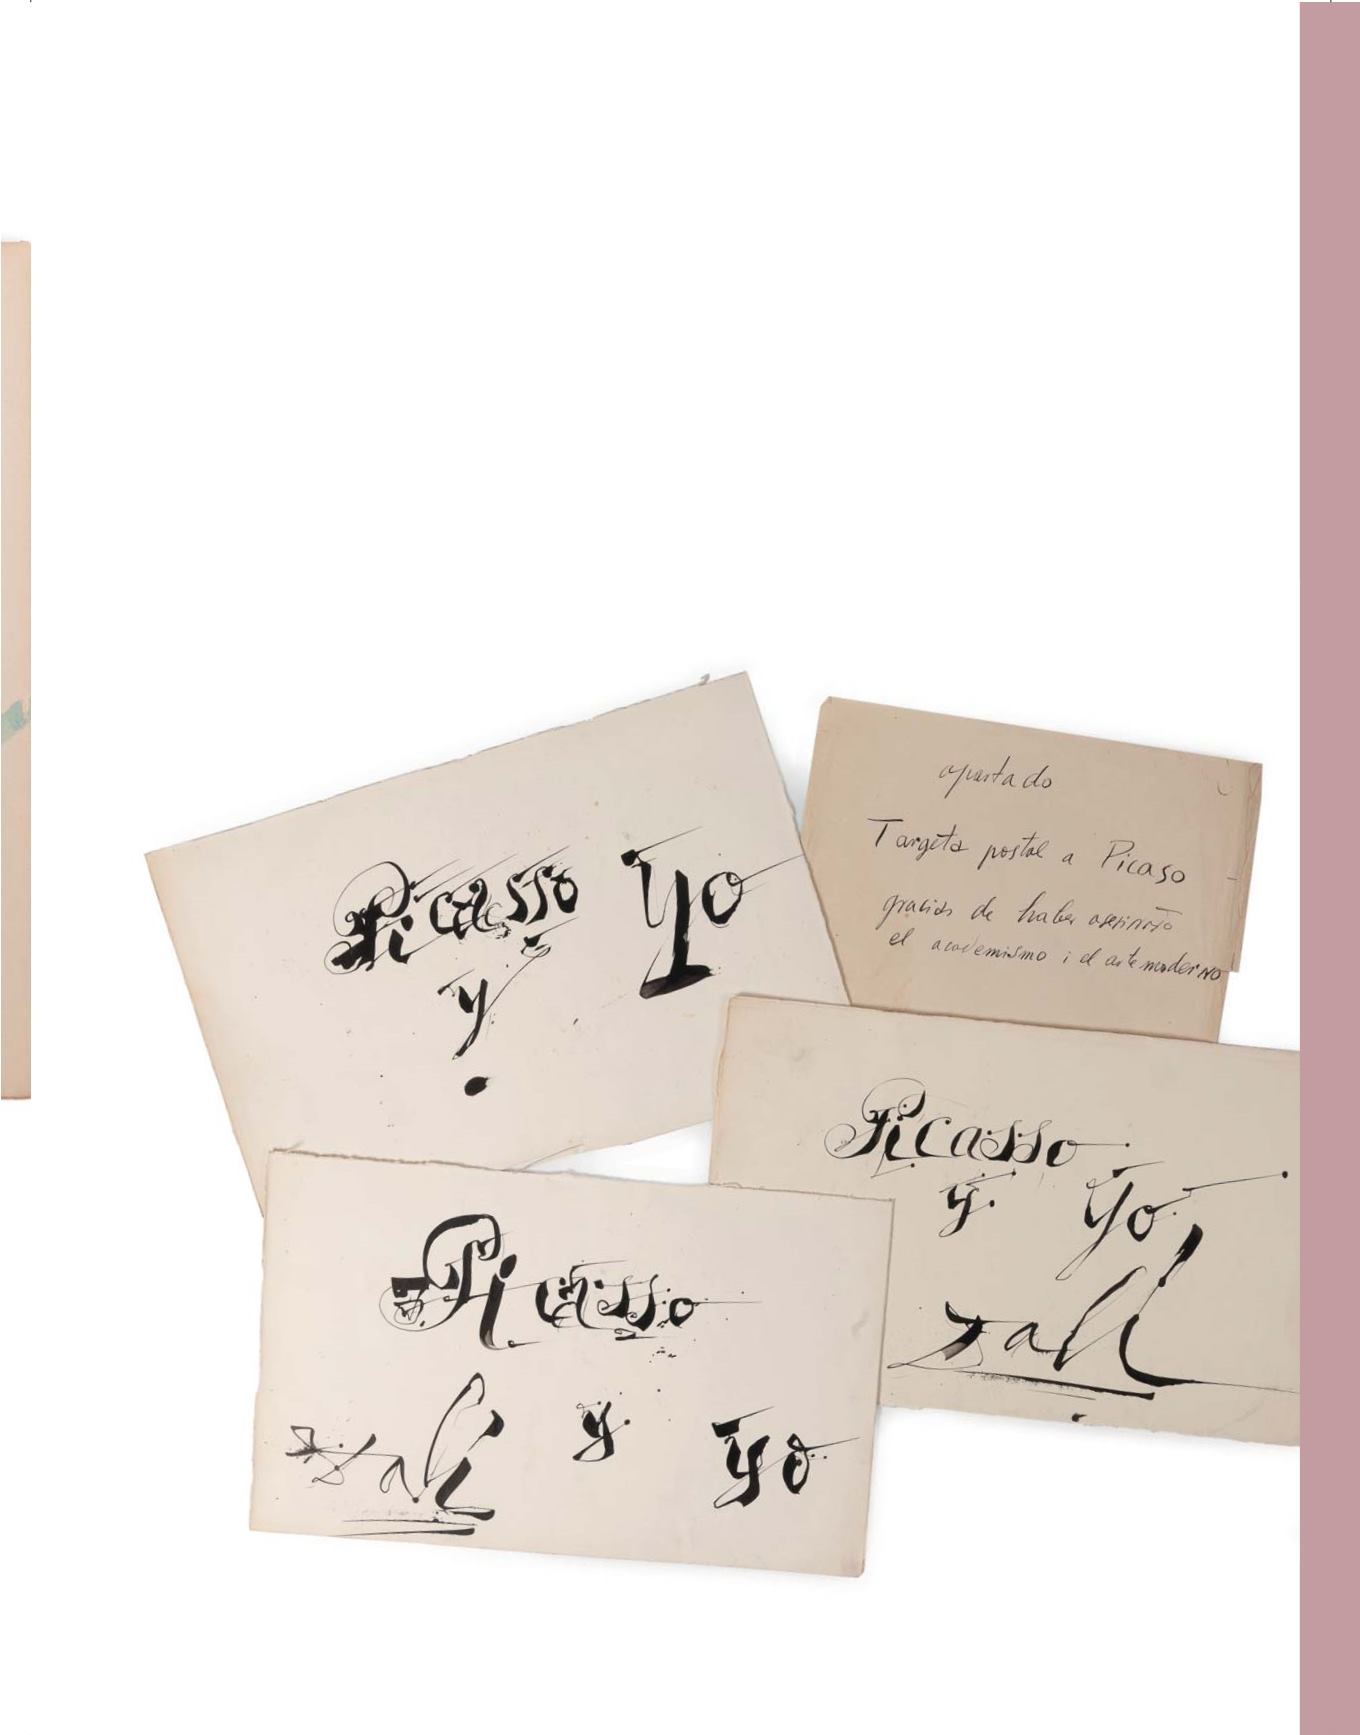 Picasso Yo
y
apartado
Targeta postal a Picaso
gracias de haber asesinato
el academismo i el arte moderno
Picasso
y. Yo
Dalí
Picasso
Dalí y. yo